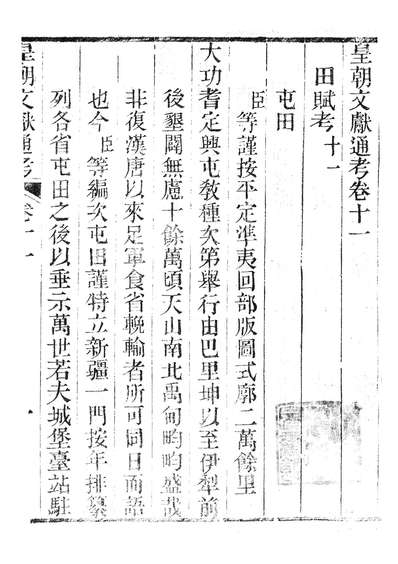 皇朝文獻通考卷十一
田賦考十一
屯田
臣等謹按平定準夷回部版圖式廓二萬餘里
大功耆定興屯敎種次第舉行由巴里坤以至伊犁前
後墾闢無慮十餘萬頃天山南北禹甸畇畇盛哉
非復漢唐以來足軍食省輓輸者所可同日而語
也今臣等編次屯田謹特立新疆一門按年排纂
列各省屯田之後以垂示萬世若夫城堡臺站駐
皇朝文獻通考 卷十一 一